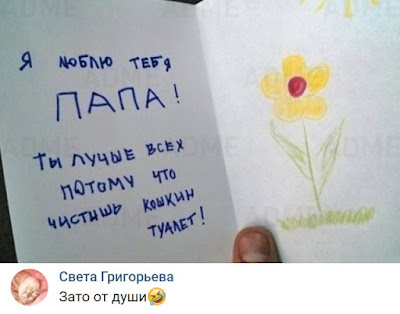 Я ЛЮБЛЮ ТЕБЯ
ПАПА!
ТЫ ЛУЧЫЕ ВСЕХ
ПОТОМУ ЧТО
ЧИСТИШЬ КОШКИН
ТУАЛЕТ!
ADME
Света Григорьева
Зато от души🤣